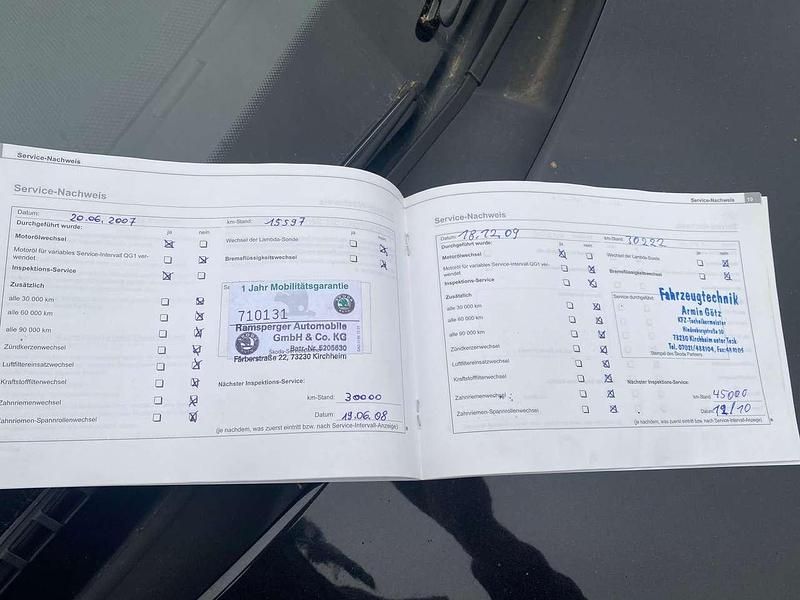 Service-Nachweis
Service-Nachweis
Datum: 20.06.2007 km-Stand: 15597
Durchgeführt wurde: ja nein
Motorölwechsel
Motoröl für variables Service-Intervall QG1 ver-
wendet
Inspektions-Service
Zusätzlich
alle 30 000 km
alle 60 000 km
alle 90 000 km
Zündkerzenwechsel
Luftfiltereinsatzwechsel
Kraftstofffilterwechsel
Zahnriemenwechsel
Zahnriemen-Spannrollenwechsel
ja nein
Wechsel der Lambda-Sonde
Bremsflüssigkeitswechsel
1 Jahr Mobilitätsgarantie
710131
Ramsperger Automobile
GmbH & Co. KG
Betr.-Nr. 5205630
Färberstraße 22, 73230 Kirchheim
Nächster Inspektions-Service:
km-Stand: 30000
Datum: 19.06.08
(je nachdem, was zuerst eintritt bzw. nach Service-Intervall-Anzeige)
Service-Nachweis 19
Service-Nachweis
Datum: 18.12.09 km-Stand:
Durchgeführt wurde: ja nein
Motorölwechsel
Motoröl für variables Service-Intervall QG1 ver-
wendet
Inspektions-Service
Zusätzlich
alle 30 000 km
alle 60 000 km
alle 90 000 km
Zündkerzenwechsel
Luftfiltereinsatzwechsel
Kraftstofffilterwechsel
Zahnriemenwechsel
Zahnriemen-Spannrollenwechsel
ja nein
Wechsel der Lambda-Sonde
Bremsflüssigkeitswechsel
Service durchgeführt:
Fahrzeugtechnik
Armin Götz
KFZ-Technikermeister
73230 Kirchheim unter Teck
Stempel des Skoda Partners
Nächster Inspektions-Service:
km-Stand: 45000
Datum: 12/10
(je nachdem, was zuerst eintritt bzw. nach Service-Intervall-Anzeige)